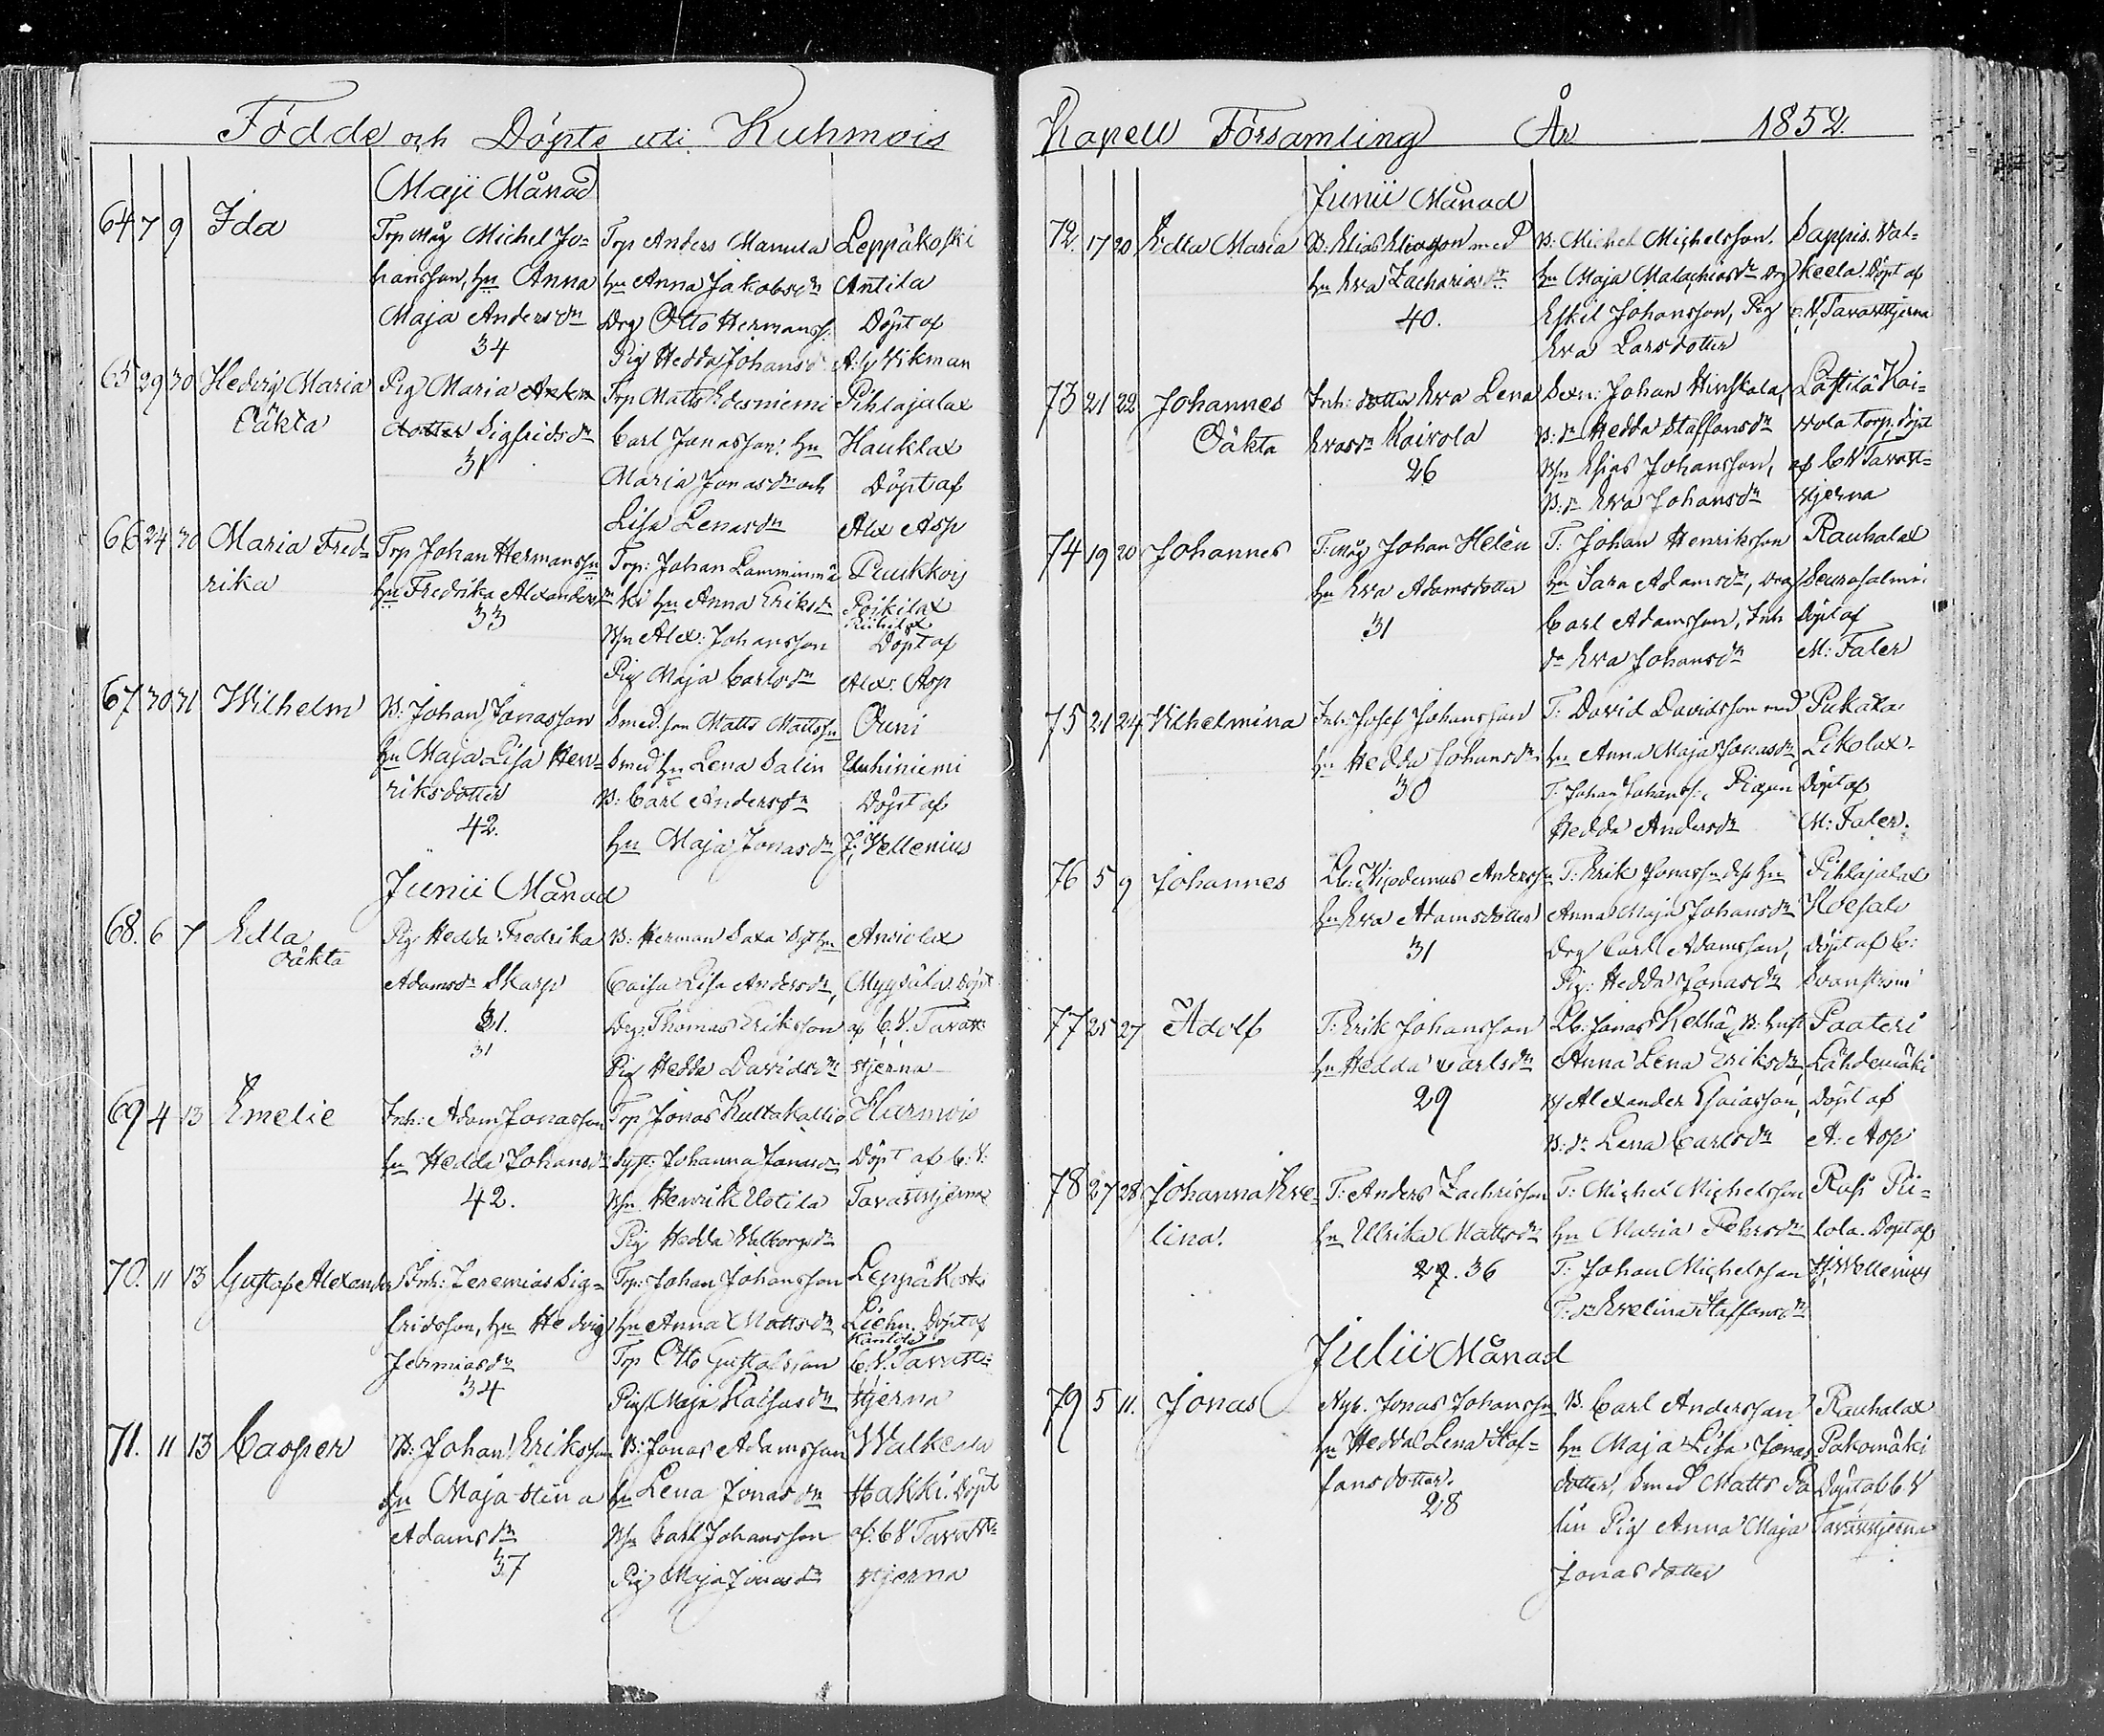 Födde och Döpte uti Kuhmois
Maji Månad
64 7 9 Ida
Trp Måg Michel Jo=
hansson, hu Anna
Maja Andersdr
34
Trp Anders Mamula
hu Anna Jakobsdr
Drg Otto Hermanss:
Pig Hedda Johansd
Leppäkoski
Antila
Döpt af
Vikman
65 29 30 Hedvig Maria
Oäkta
Pig Maria
dotter Sigfridsdr
31
Trp Matts Edesniemi
Carl Jonasson: hu
Maria Jonasdr och
Lisa Lenasdr
Pihlajalax
Hauklax
Döpt af
Alex Asp
66 24 30 Maria Fred=
rika
Trp Johan Hermanssn
hu Fredrika Alexandersdr
33
Trp: Johan Lamminmä
ki hu Anna Eriksdr
Alex: Johansson
Pig Maja Carlsdr
Puukkois
Poikilax
Döpt af
Alex: Asp
67 30 31 Wilhelm
B: Johan Jonasson
hu Maja Lisa Hen=
riksdotter
42.
Smed: son Matts Mattssn
Smed hu Lena Salin
B: Carl Andersdr
hu Maja Jonasdr
Ouni
Uuhiniemi
Döpt af
J: Vellenius
Junii Månad
68. 6 7 Edla
oäkta
Pig Hedda Fredrika
Adamsdr Skarp
31.
31
B: Herman Saxa
Caisa Lisa Andersdr,
Drg: Thomas Eriksson
Pig Hedda Davidsdr
Ansiolax
Myysälä Döpt
af C. V. Tavast
stjerna
69 4 13 Emelie
Inh: Adam Jonasson
hu Hedda Johansdr
42.
Trp Jonas Kultakallio
Johanna Jonasdr
Henrik Uotila
Pig Hedda Walborgsdr
Harmois
Döpt af C: V:
Tavaststjerna
70. 11 13 Gustaf Alexander
Inh: Jeremias Sig=
fridsson, hu Hedvig
Jermiasdr
34
Trp: Johan Johansson
hu Anna Mattsdr
Trp Otto Gustafsson
Pig Maja
Leppäkoski
Döpt af
C. V. Tavast=
stjerna
71. 11 13 Casper
B: Johan Eriksson
hu Maja Stina
Adamsdr
37
B: Jonas Adamsson
hu Lena Jonasdr
Carl Johansson
Pig Maja Jonasdr
Walkeela
Hakki. Döpt
af: C V Tavast=
stjerna
Kapell Församling År 1852.
Junii Månad
72. 17 20 Edla Maria
B. Elias Eliasson med
hu Eva Zachariasdr
40.
B: Michel Michelsson.
hu Maja Malachiasdr Drg
Eskil Johansson, Pig
Eva Larsdotter
Sappis. Val=
keela. Döpt af
C. V. Tavaststjerna
73 21 22 Johannes
Oäkta
Inh: dotter Eva Lena
Evasdr Koivola
26
Johan Hirskala,
B: dr Hedda Staffansdr
Esias Johansson,
B: dr Eva Johansdr
Lästilä Koi=
vola torp, döpt
af C V Tavast=
stjerna
74 19 20 Johannes
T: Måg Johan Helén
hu Eva Adamsdotter
31
T: Johan Henriksson
hu Sara Adamsdr, Drg
Carl Adamsson, Inh
dr Eva Johansdr
Rauhalax
Seurasalmi
Döpt af
M: Faler
75 21 24 Vilhelmina
Inh: Josef Johansson
hu Hedda Johansdr
30
T: David Davidsson med
hu Anna Maja Jonasdr
T: Johan Johanss:, Pigan
Hedda Andersdr
Pukara
Likolax.
Döpt af
M: Faler.
76 5 9 Johannes
Lb: Nicodemus Anderssn
hu Eva Adamsdotter
31
T: Erik Jonassn hu
Anna Maja Johansdr
Drg Carl Adamsson,
Pig: Hedda Jonasdr
Pihlajalax
döpt af C:
Svanström
77 25 27 Adolf
T: Erik Johansson
hu Hedda Carlsdr
29
Lb: Jonas Kelhä B: hust
Anna Lena Eriksdr,
Alexander Esaiasson,
B: dr Lena Carlsdr
Paateri
Lähdemäki
Döpt af
A: Asp
78 27 28 Johanna Eve=
lina.
T: Anders Zachrisson
hu Ulrika Mattsdr
27. 36
T: Michel Michelsson
hu Maria Pehrsdr
T: Johan Michelsson
T: dr Evelina Staffansdr
Rusi Pii=
lola. Döpt af
Wellenius
Julii Månad
79 5 11. Jonas
Nyb. Jonas Johanssn
hu Hedda Lena Staf=
fansdotter.
28
B. Carl Andersson
hu Maja Lisa Jonas
dotter, Smed Matts Sa
lin Pig Anna Maja
Jonasdotter
Rauhalax
Pakomäki
Döpt af C. V
Tavaststjerna